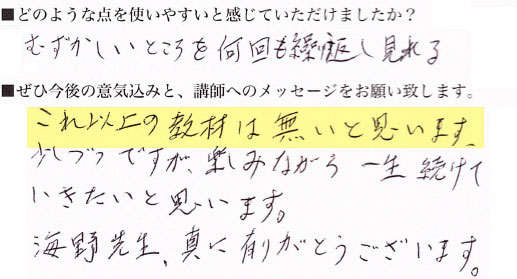 ■どのような点を使いやすいと感じていただけましたか？
むずかしいところを何回も繰り返し見れる
■ぜひ今後の意気込みと、講師へのメッセージをお願い致します。
これ以上の教材は無いと思います、
少しづつですが、楽しみながら一生続けて
いきたいと思います。
海野先生、真に有りがとうございます。